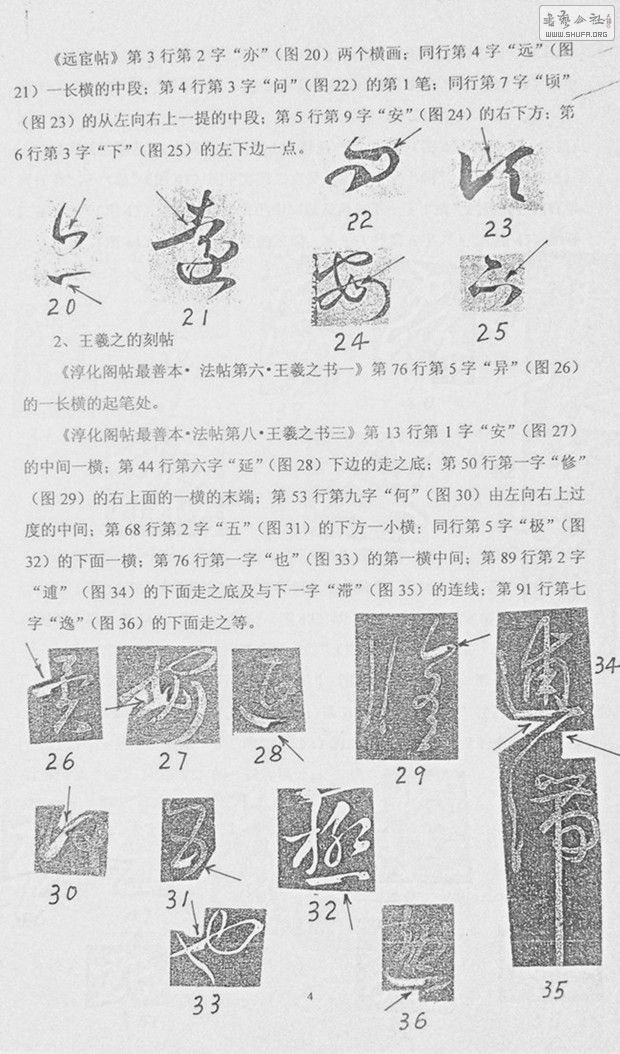 書藝公社
WWW.SHUFA.ORG
《远宦帖》第 3 行第 2 字“亦”（图 20）两个横画；同行第 4 字“远”（图
21）一长横的中段；第 4 行第 3 字“问”（图 22）的第 1 笔；同行第 7 字“顷”
（图 23）的从左向右上一提的中段；第 5 行第 9 字“安”（图 24）的右下方；第
6 行第 3 字“下”（图 25）的左下边一点。
22
23
20
21
24
25
2、王羲之的刻帖
《淳化阁帖最善本•法帖第六•王羲之书一》第 76 行第 5 字“异”（图 26）
的一长横的起笔处。
《淳化阁帖最善本•法帖第八•王羲之书三》第 13 行第 1 字“安”（图 27）
的中间一横；第 44 行第六字“延”（图 28）下边的走之底；第 50 行第一字“修”
（图 29）的右上面的一横的末端；第 53 行第九字“何”（图 30）由左向右上过
度的中间；第 68 行第 2 字“五”（图 31）的下方一小横；同行第 5 字“极”（图
32）的下面一横；第 76 行第一字“也”（图 33）的第一横中间；第 89 行第 2 字
“逋”（图 34）的下面走之底及与下一字“滞”（图 35）的连线；第 91 行第七
字“逸”（图 36）的下面走之等。
34
26
27
28
29
30
31
32
33
36
35
4